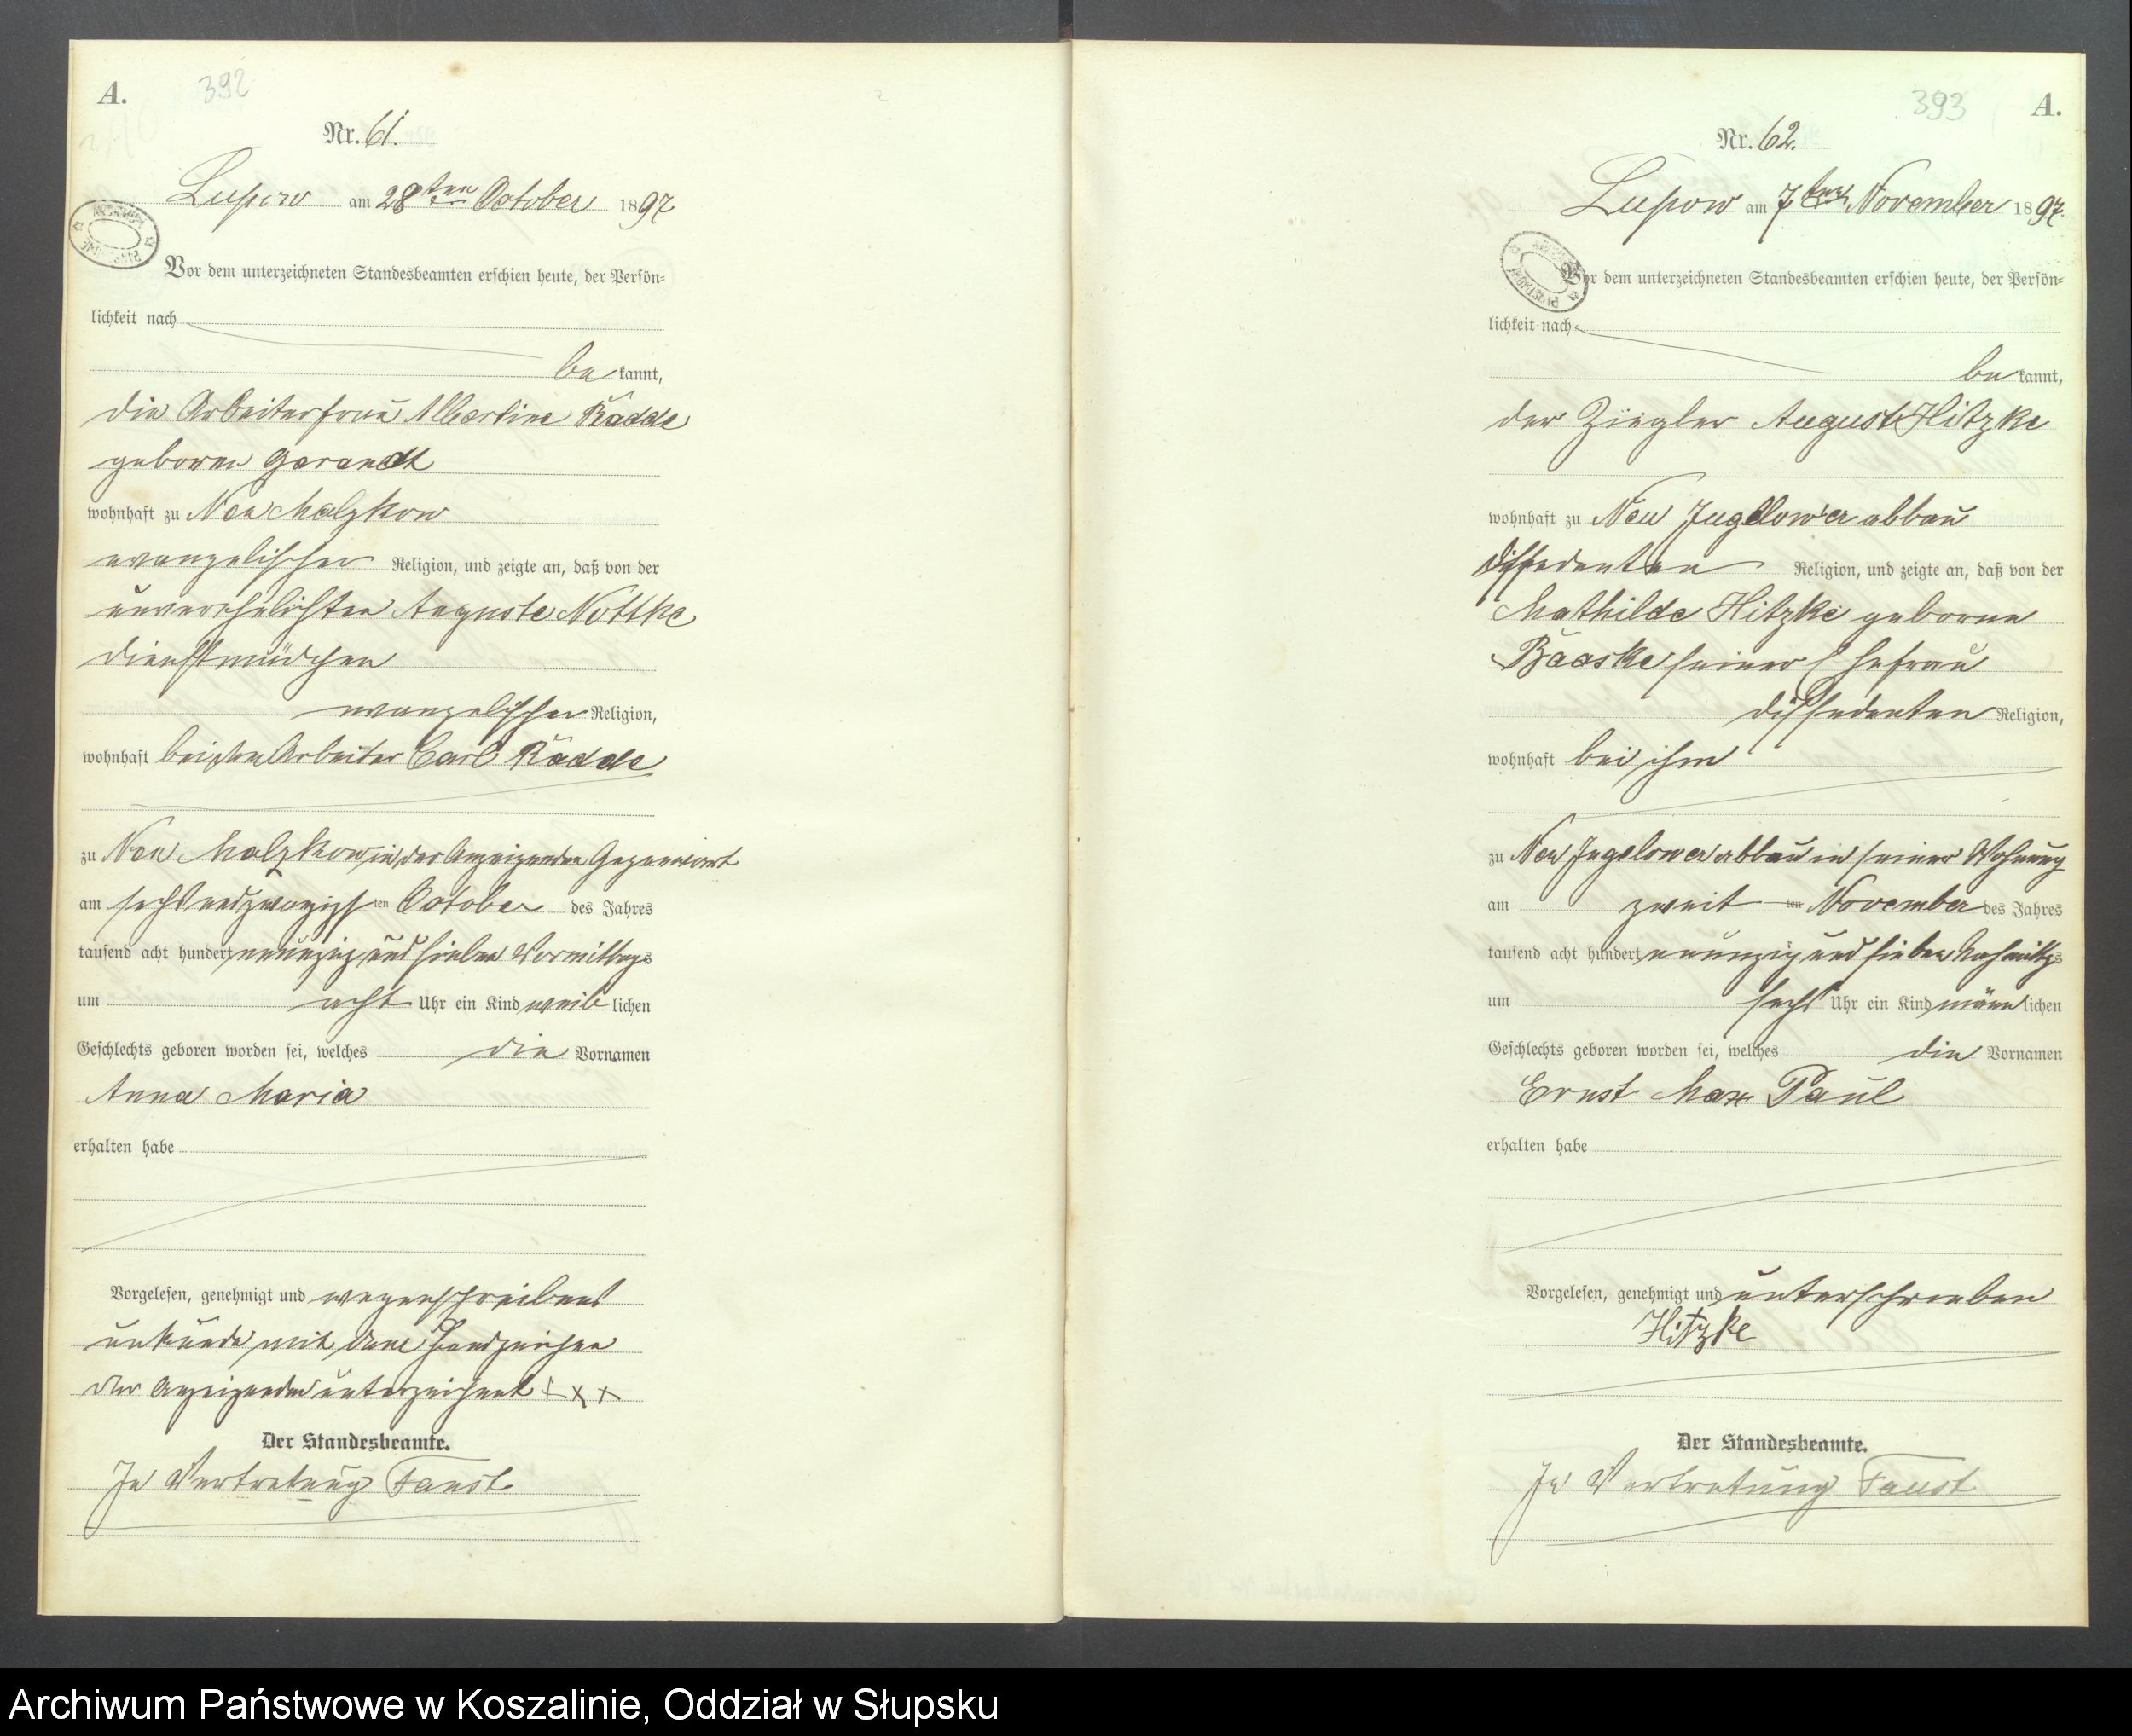 A.
392
Nr. 61.
Lupow am 28ten October 1897
Vor dem unterzeichneten Standesbeamten erschien heute, der Persön-
lichkeit nach
be kannt,
die Arbeiterfrau Albertine Radde
geborene
wohnhaft zu Neu Malzkow
evangelischer Religion, und zeigte an, daß von der
unverehelichten Auguste Nottke
Dienstmädchen
evangelischer Religion,
wohnhaft bei dem Arbeiter Carl Radde
zu Neu Malzkow in der Anzeigenden Gegenwart
am sechsundzwanzigsten October des Jahres
tausend acht hundert neunzig und sieben Vormittags
um acht Uhr ein Kind weib lichen
Geschlechts geboren worden sei, welches die Vornamen
Anna Maria
erhalten habe
Vorgelesen, genehmigt und wegen Schreibens
unkunde mit dem Handzeichen
der Anzeigenden unterzeichnet + x x
Der Standesbeamte.
In Vertretung Faust
393
A.
Nr. 62.
Lupow am 7ten November 1897.
Vor dem unterzeichneten Standesbeamten erschien heute, der Persön-
lichkeit nach
be kannt,
der Ziegler August Hitzke
wohnhaft zu Neu Jugelow'er abbau
dissedenten Religion, und zeigte an, daß von der
Mathilde Hitzke geborne
Baaske seiner Ehefrau
dissedenten Religion,
wohnhaft bei ihm
zu Neu Jugelower abbau in seiner Wohnung
am zweit ten November des Jahres
tausend acht hundert neunzig und sieben Nachmittgs
um sechs Uhr ein Kind männ lichen
Geschlechts geboren worden sei, welches die Vornamen
Ernst Max Paul
erhalten habe
Vorgelesen, genehmigt und unterschrieben
Hitzke
Der Standesbeamte.
In Vertretung Faust
Archiwum Państwowe w Koszalinie, Oddział w Słupsku